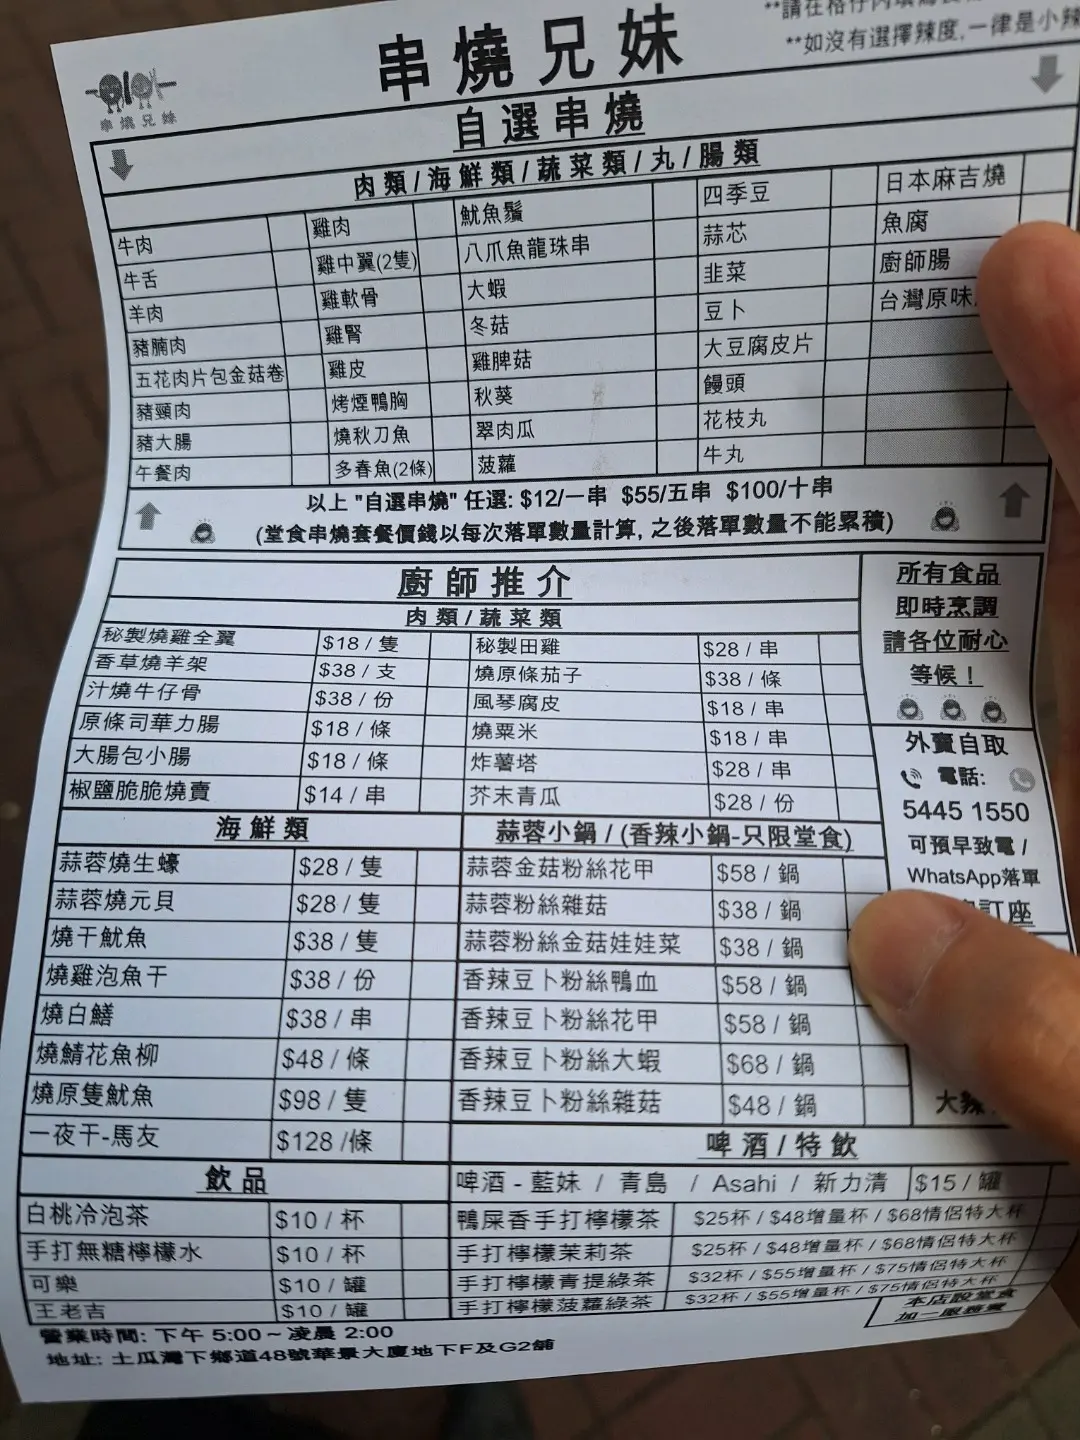 串燒兄妹
**如沒有選擇辣度,一律是小辣
串燒兄妹
自選串燒
肉類/海鮮類/蔬菜類/丸/腸類
牛肉 雞肉 魷魚鬚 四季豆 日本麻吉燒
牛舌 雞中翼(2隻) 八爪魚龍珠串 蒜芯 魚腐
羊肉 雞軟骨 大蝦 韭菜 廚師腸
豬腩肉 雞腎 冬菇 豆卜 台灣原味
五花肉片包金菇卷 雞皮 雞脾菇 大豆腐皮片
豬頸肉 烤煙鴨胸 秋葵 饅頭
豬大腸 燒秋刀魚 翠肉瓜 花枝丸
午餐肉 多春魚(2條) 菠蘿 牛丸
以上 "自選串燒" 任選: $12/一串 $55/五串 $100/十串
(堂食串燒套餐價錢以每次落單數量計算, 之後落單數量不能累積)
廚師推介
肉類/蔬菜類
秘製燒雞全翼 $18 / 隻 秘製田雞 $28 / 串
香草燒羊架 $38 / 支 燒原條茄子 $38 / 條
汁燒牛仔骨 $38 / 份 風琴腐皮 $18 / 串
原條司華力腸 $18 / 條 燒粟米 $18 / 串
大腸包小腸 $18 / 條 炸薯塔 $28 / 串
椒鹽脆脆燒賣 $14 / 串 芥末青瓜 $28 / 份
所有食品
即時烹調
請各位耐心
等候！
外賣自取
電話:
5445 1550
可預早致電 /
WhatsApp落單
訂座
海鮮類 蒜蓉小鍋 / (香辣小鍋-只限堂食)
蒜蓉燒生蠔 $28 / 隻 蒜蓉金菇粉絲花甲 $58 / 鍋
蒜蓉燒元貝 $28 / 隻 蒜蓉粉絲雜菇 $38 / 鍋
燒干魷魚 $38 / 隻 蒜蓉粉絲金菇娃娃菜 $38 / 鍋
燒雞泡魚干 $38 / 份 香辣豆卜粉絲鴨血 $58 / 鍋
燒白鱔 $38 / 串 香辣豆卜粉絲花甲 $58 / 鍋
燒鯖花魚柳 $48 / 條 香辣豆卜粉絲大蝦 $68 / 鍋
燒原隻魷魚 $98 / 隻 香辣豆卜粉絲雜菇 $48 / 鍋
大辣
一夜干-馬友 $128 /條 啤酒/特飲
飲品 啤酒 - 藍妹 / 青島 / Asahi / 新力清 $15 / 罐
白桃冷泡茶 $10 / 杯 鴨屎香手打檸檬茶 $25杯 / $48增量杯 / $68情侶特大杯
手打無糖檸檬水 $10 / 杯 手打檸檬茉莉茶 $25杯 / $48增量杯 / $68情侶特大杯
可樂 $10 / 罐 手打檸檬青提綠茶 $32杯 / $55增量杯 / $75情侶特大杯
王老吉 $10 / 罐 手打檸檬菠蘿綠茶 $32杯 / $55增量杯 / $75情侶特大杯
本店設堂食
加一服務費
營業時間: 下午 5:00 ~ 凌晨 2:00
地址: 土瓜灣下鄉道48號華景大廈地下F及G2舖